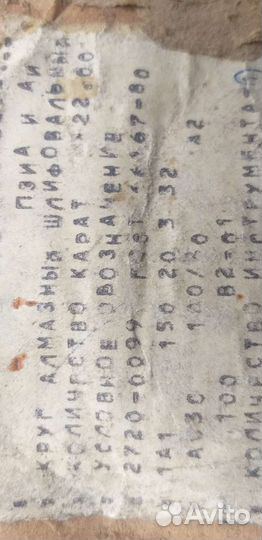 ПЗИА И АИ
КРУГ АЛМАЗНЫЙ ШЛИФОВАЛЬНЫЙ
КОЛИЧЕСТВО КАРАТ 22.00
УСЛОВНОЕ ОБОЗНАЧЕНИЕ
2720-0099 ГОСТ 67-80
1А1 150 20 3 32 А2
100 В2-01
КОЛИЧЕСТВО ИНСТРУМЕНТА-1
Avito